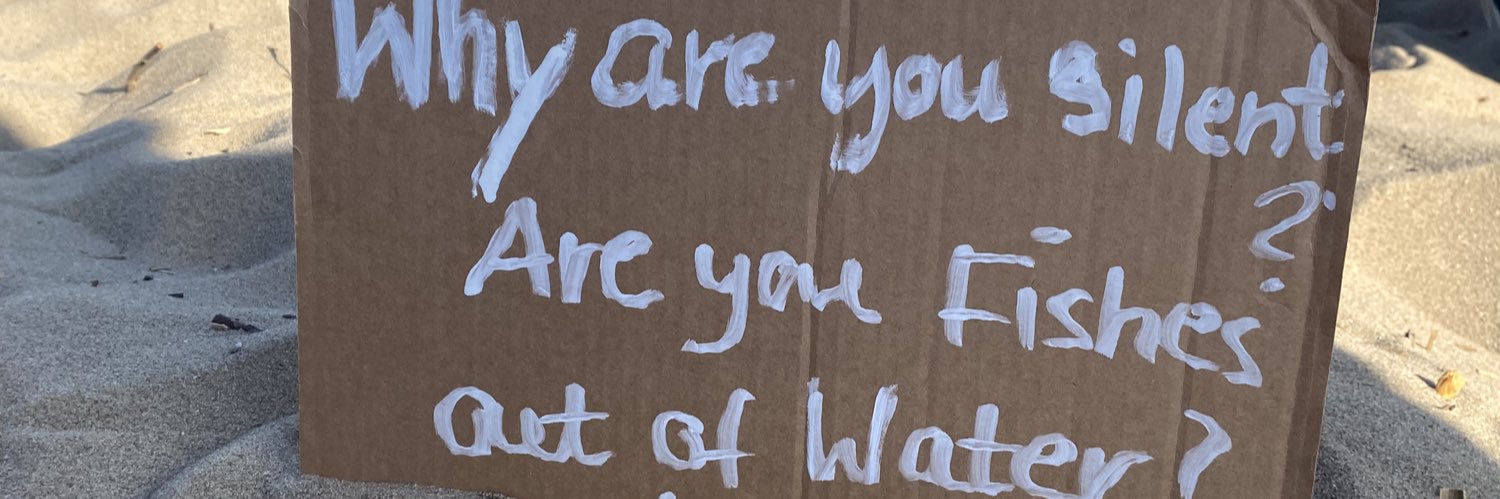 Why are you silent
?
Are you Fishes
out of Water?